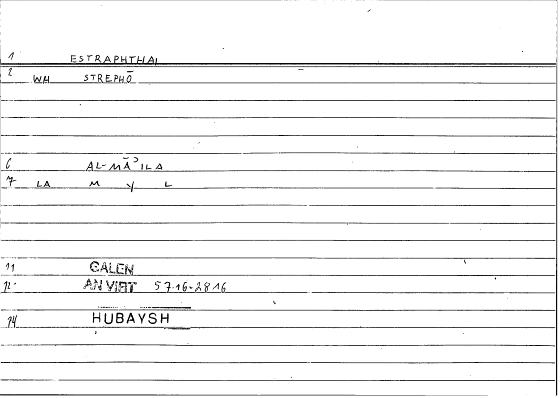 1 ESTRAPHTHAI
2 WH STREPHŌ
6 AL-MĀʾILA
7 LA M Y L
11 GALEN
12 AN VIRT 57.16-2816
14 HUBAYSH